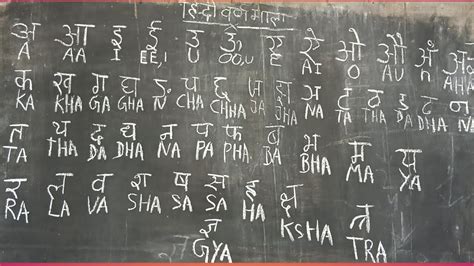 हिन्दी वर्ण माला
अ आ इ ई उ ऊ ए ऐ ओ औ अं अः
A AA I EE,I U OO,U AI O AU n AHA
क ख ग घ ङ च छ ज झ ञ ट ठ ड ढ ण
KA KHA GA GHA N CHA CHHA JA JHA NA TA THA DA DHA NA
त थ द ध न प फ ब भ म य
TA THA DA DHA NA PA PHA. BA BHA MA YA
र ल व श ष स ह क्ष त्र
RA LA VA SHA SA SA HA KSHA TRA
ज्ञ
GYA